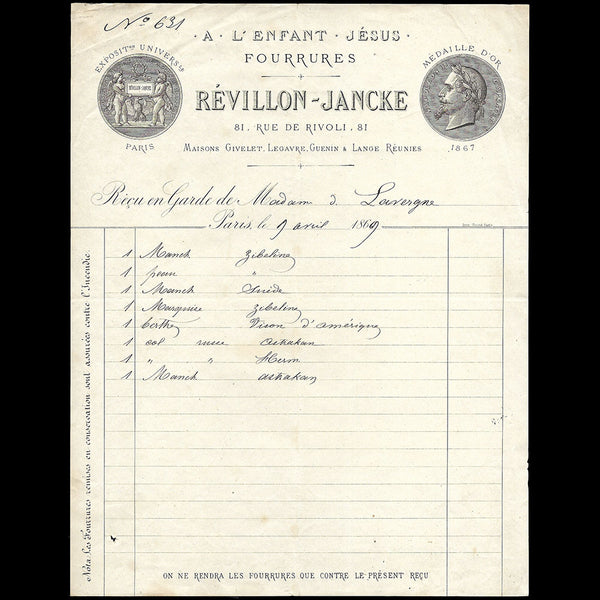 No 631
A L'ENFANT JÉSUS
FOURRURES
EXPOSITon UNIVERSle
RÉVILLON-JANCKE
PARIS
RÉVILLON-JANCKE
81, RUE DE RIVOLI, 81
MAISONS GIVELET, LEGAVRE, GUENIN & LANGE RÉUNIES
MÉDAILLE D'OR
1867
Reçu en Garde de Madam d. Lavergne
Paris, le 9 avril 1869
1 Manch Zibeline
1 peau "
1 Manch Suède
1 Marquise Zibeline
1 berthe Vison d'amérique
1 col russe askakan
1 " " Herm
1 Manch askakan
Nota: Les Fourrures remises en conservation sont assurées contre l'Incendie.
ON NE RENDRA LES FOURRURES QUE CONTRE LE PRÉSENT REÇU